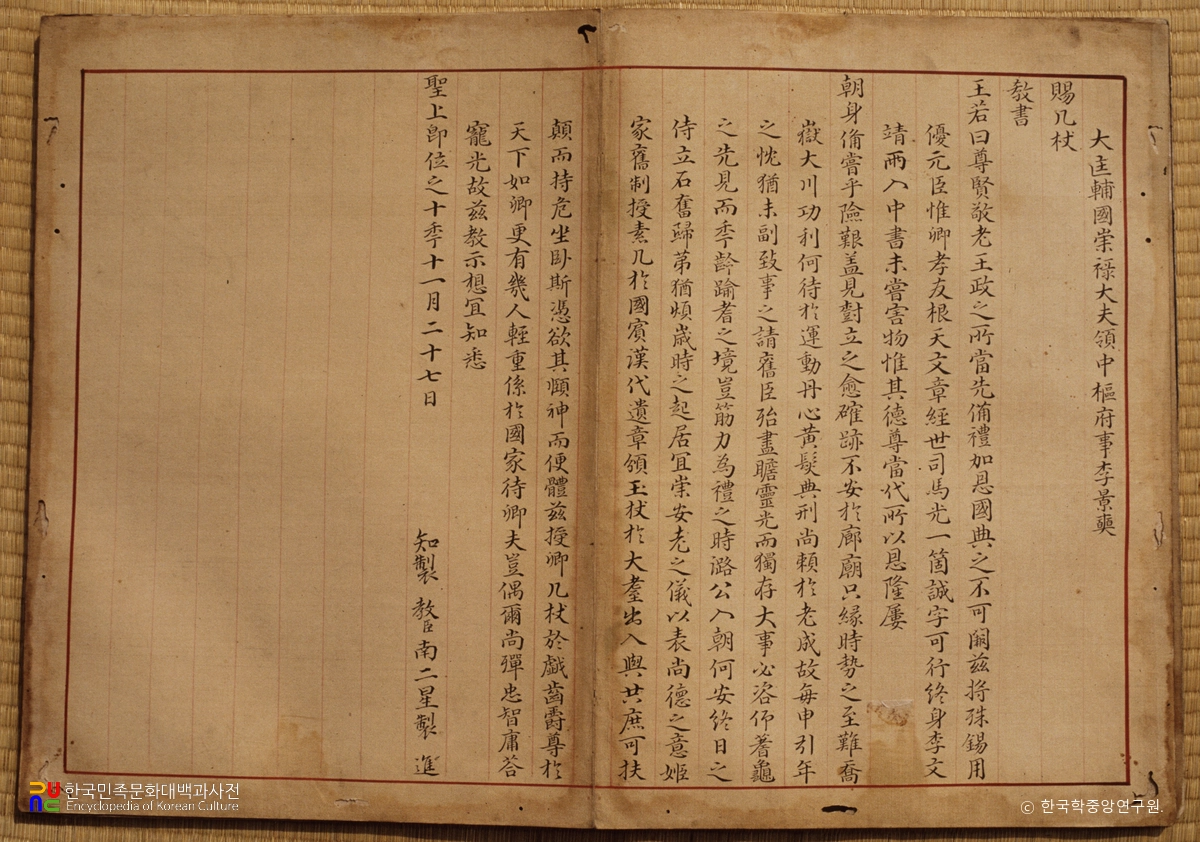 大匡輔國崇祿大夫領中樞府事李景奭
賜几杖
敎書
王若曰尊賢敬老王政之所當先備禮加恩國典之不可闕玆將殊錫用
優元臣惟卿孝友根天文章經世司馬光一箇誠字可行終身李文
靖兩入中書未嘗害物惟其德尊當代所以恩隆屢
朝身備嘗乎險艱盖見對立之愈確跡不安於廊廟只緣時勢之至難喬
嶽大川功利何待於運動丹心黃髮典刑尚賴於老成故每申引年
之忱猶未副致事之請舊臣殆盡瞻靈光而獨存大事必咨仰蓍龜
之先見而季齡踰耆之境豈筋力為禮之時潞公入朝何安終日之
侍立石奮歸第猶煩歲時之起居冝崇安老之儀以表尚德之意姬
家舊制授素几於國賓漢代遺章領玉杖於大耋出入與共庶可扶
顛而持危坐臥斯憑欲其頤神而便體玆授卿几杖於戱齒爵尊於
天下如卿更有幾人輕重係於國家待卿夫豈偶爾尚殫忠智庸答
寵光故玆教示想冝知悉
聖上卽位之十季十一月二十七日
知製 敎臣南二星製 進
한국민족문화대백과사전
Encyclopedia of Korean Culture
ⓒ 한국학중앙연구원.